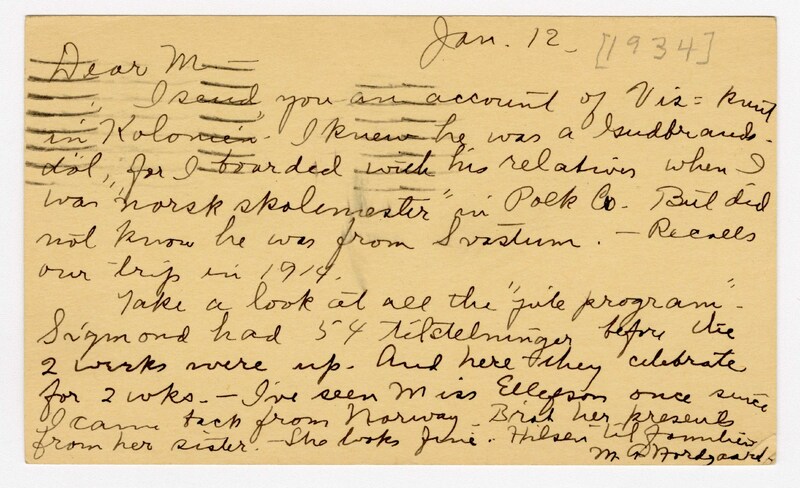 Jan. 12 [1934]
Dear M—
I send you an account of Vis-Knut
in Kolonien. I knew he was a Gudbrands-
døl, for I boarded with his relatives when I
was "norsk skolemester" in Polk Co. But did
not know he was from Svatsum. — Recalls
our trip in 1914.
Take a look at all the "jule program".
Sigmond had 54 tilstelninger before the
2 weeks were up. And here they celebrate
for 2 wks. — I've seen Miss Ellefson once since
I came back from Norway. her presents
from her sister. — She looks fine. Hilsen til familien
M. Nordgaard